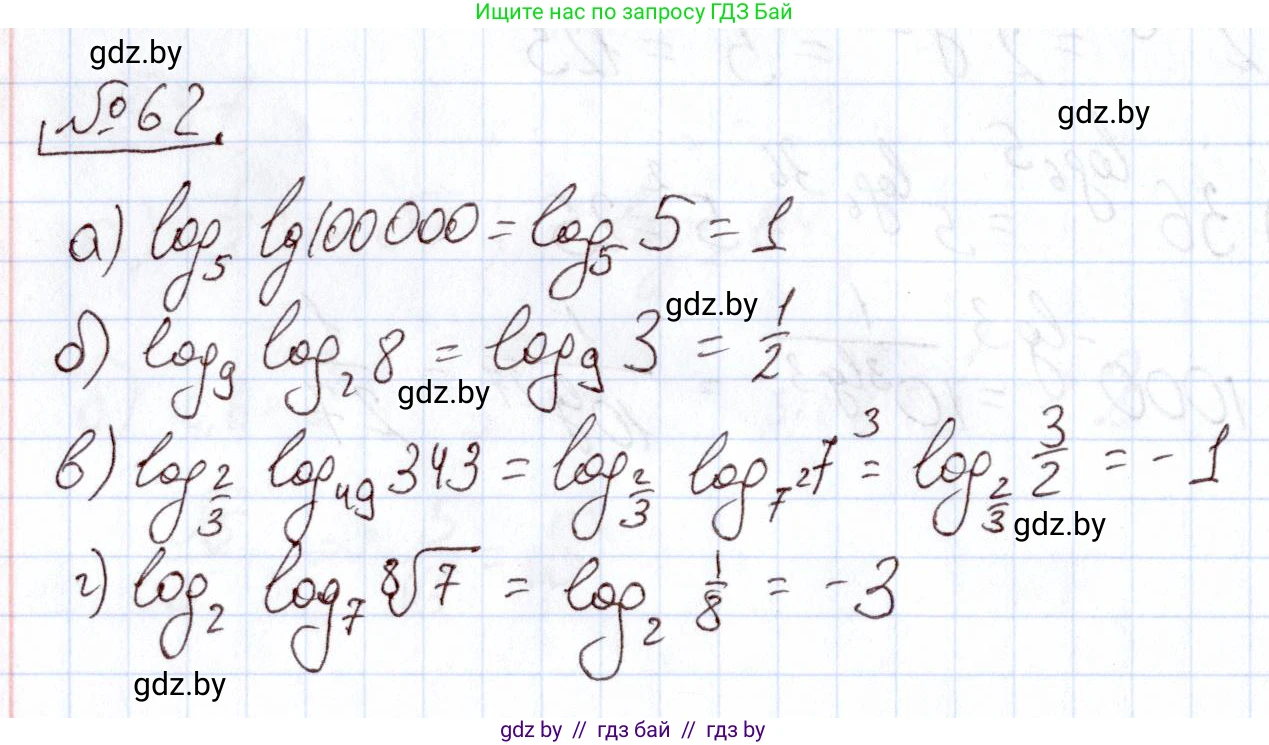 Ищите нас по запросу ГДЗ Бай
gdz.by
№ 62
gdz.by
а) log₅ lg 100 000 = log₅ 5 = 1
gdz.by
б) log₉ log₂ 8 = log₉ 3 = 1/2
gdz.by
в) log_{2/3} log₄₉ 343 = log_{2/3} log_{7²} 7³ = log_{2/3} 3/2 = -1
gdz.by
г) log₂ log₇ ⁸√7 = log₂ 1/8 = -3
gdz.by
gdz.by // гдз бай // гдз by